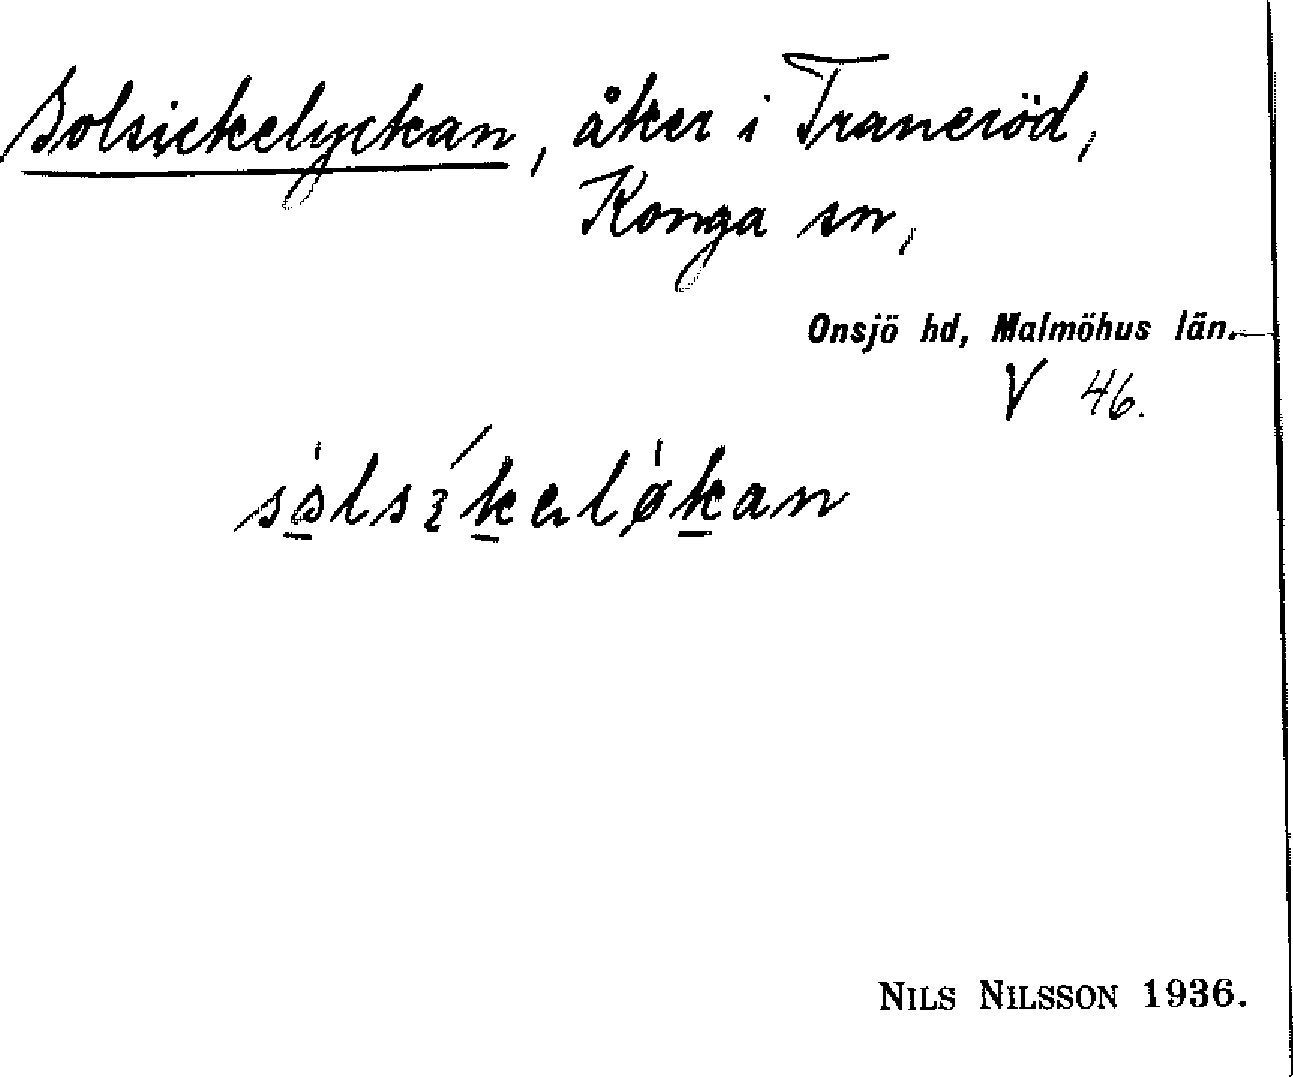 Solsickelyckan, åker i Traneröd,
Konga sn,
Onsjö hd, Malmöhus län.
V 46.
NILS NILSSON 1936.